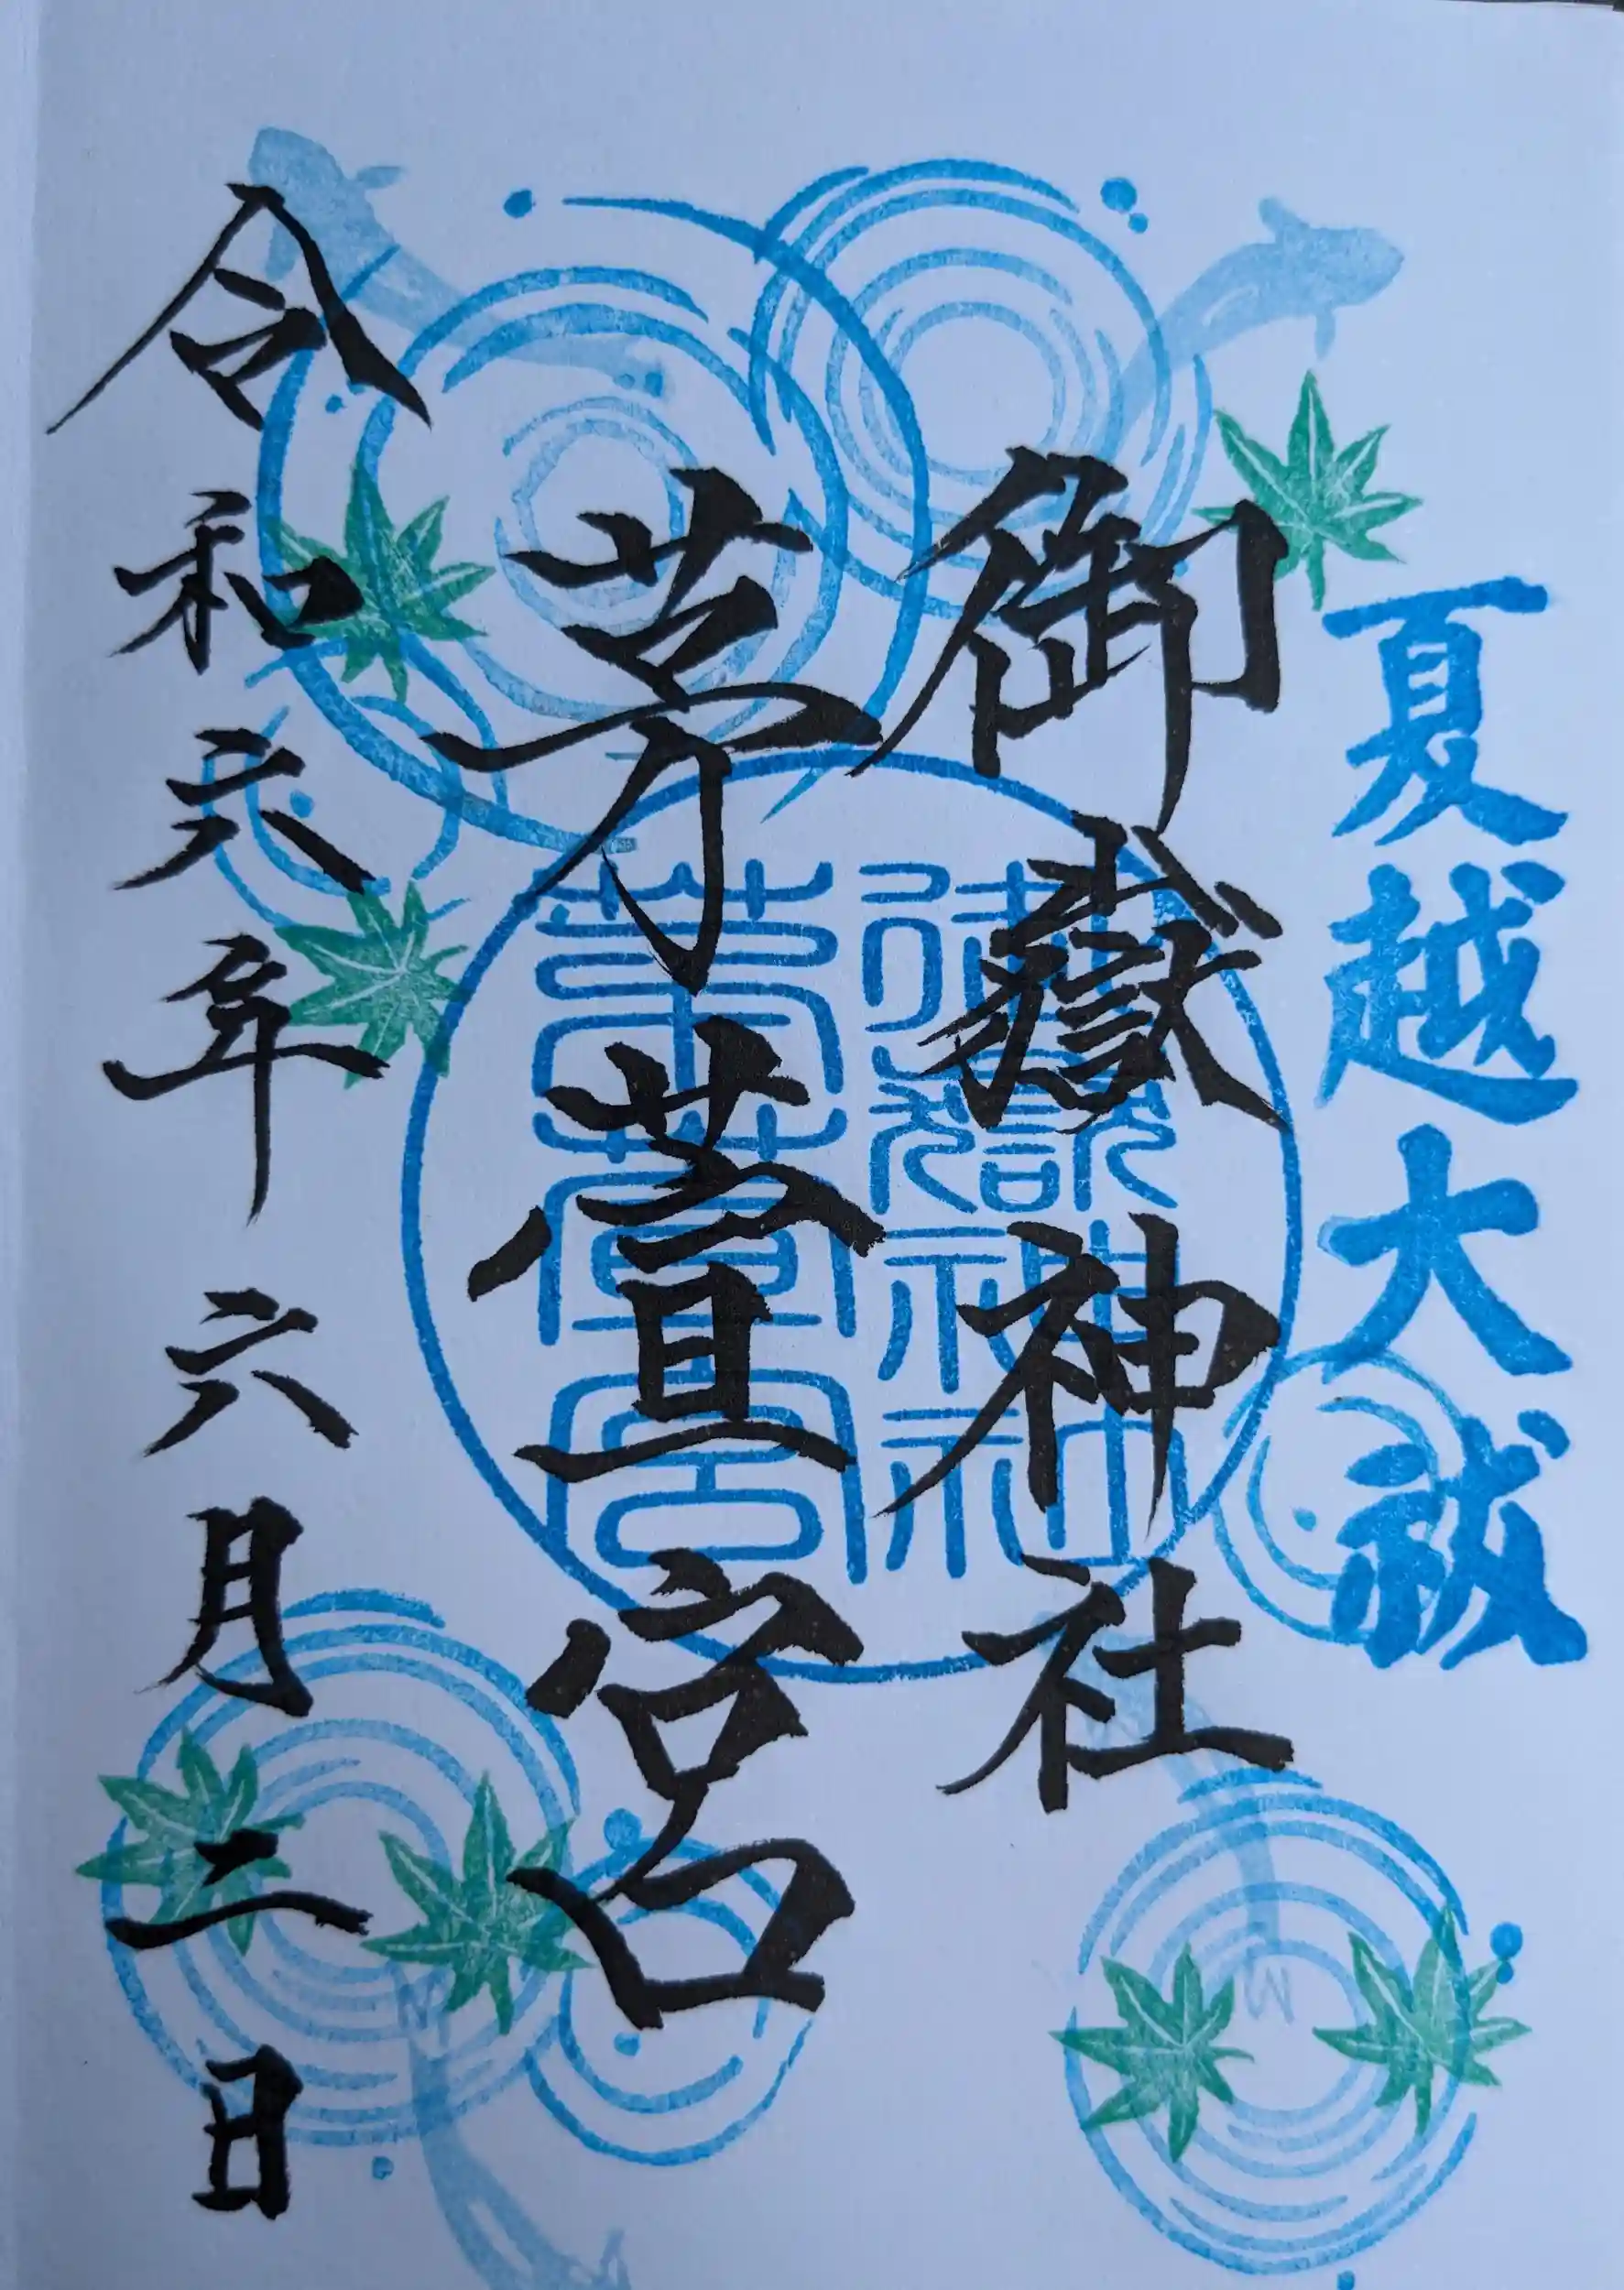 夏越大祓
御嶽神社
茅萱宮
令和六年 六月二日
御嶽神社
茅萱宮